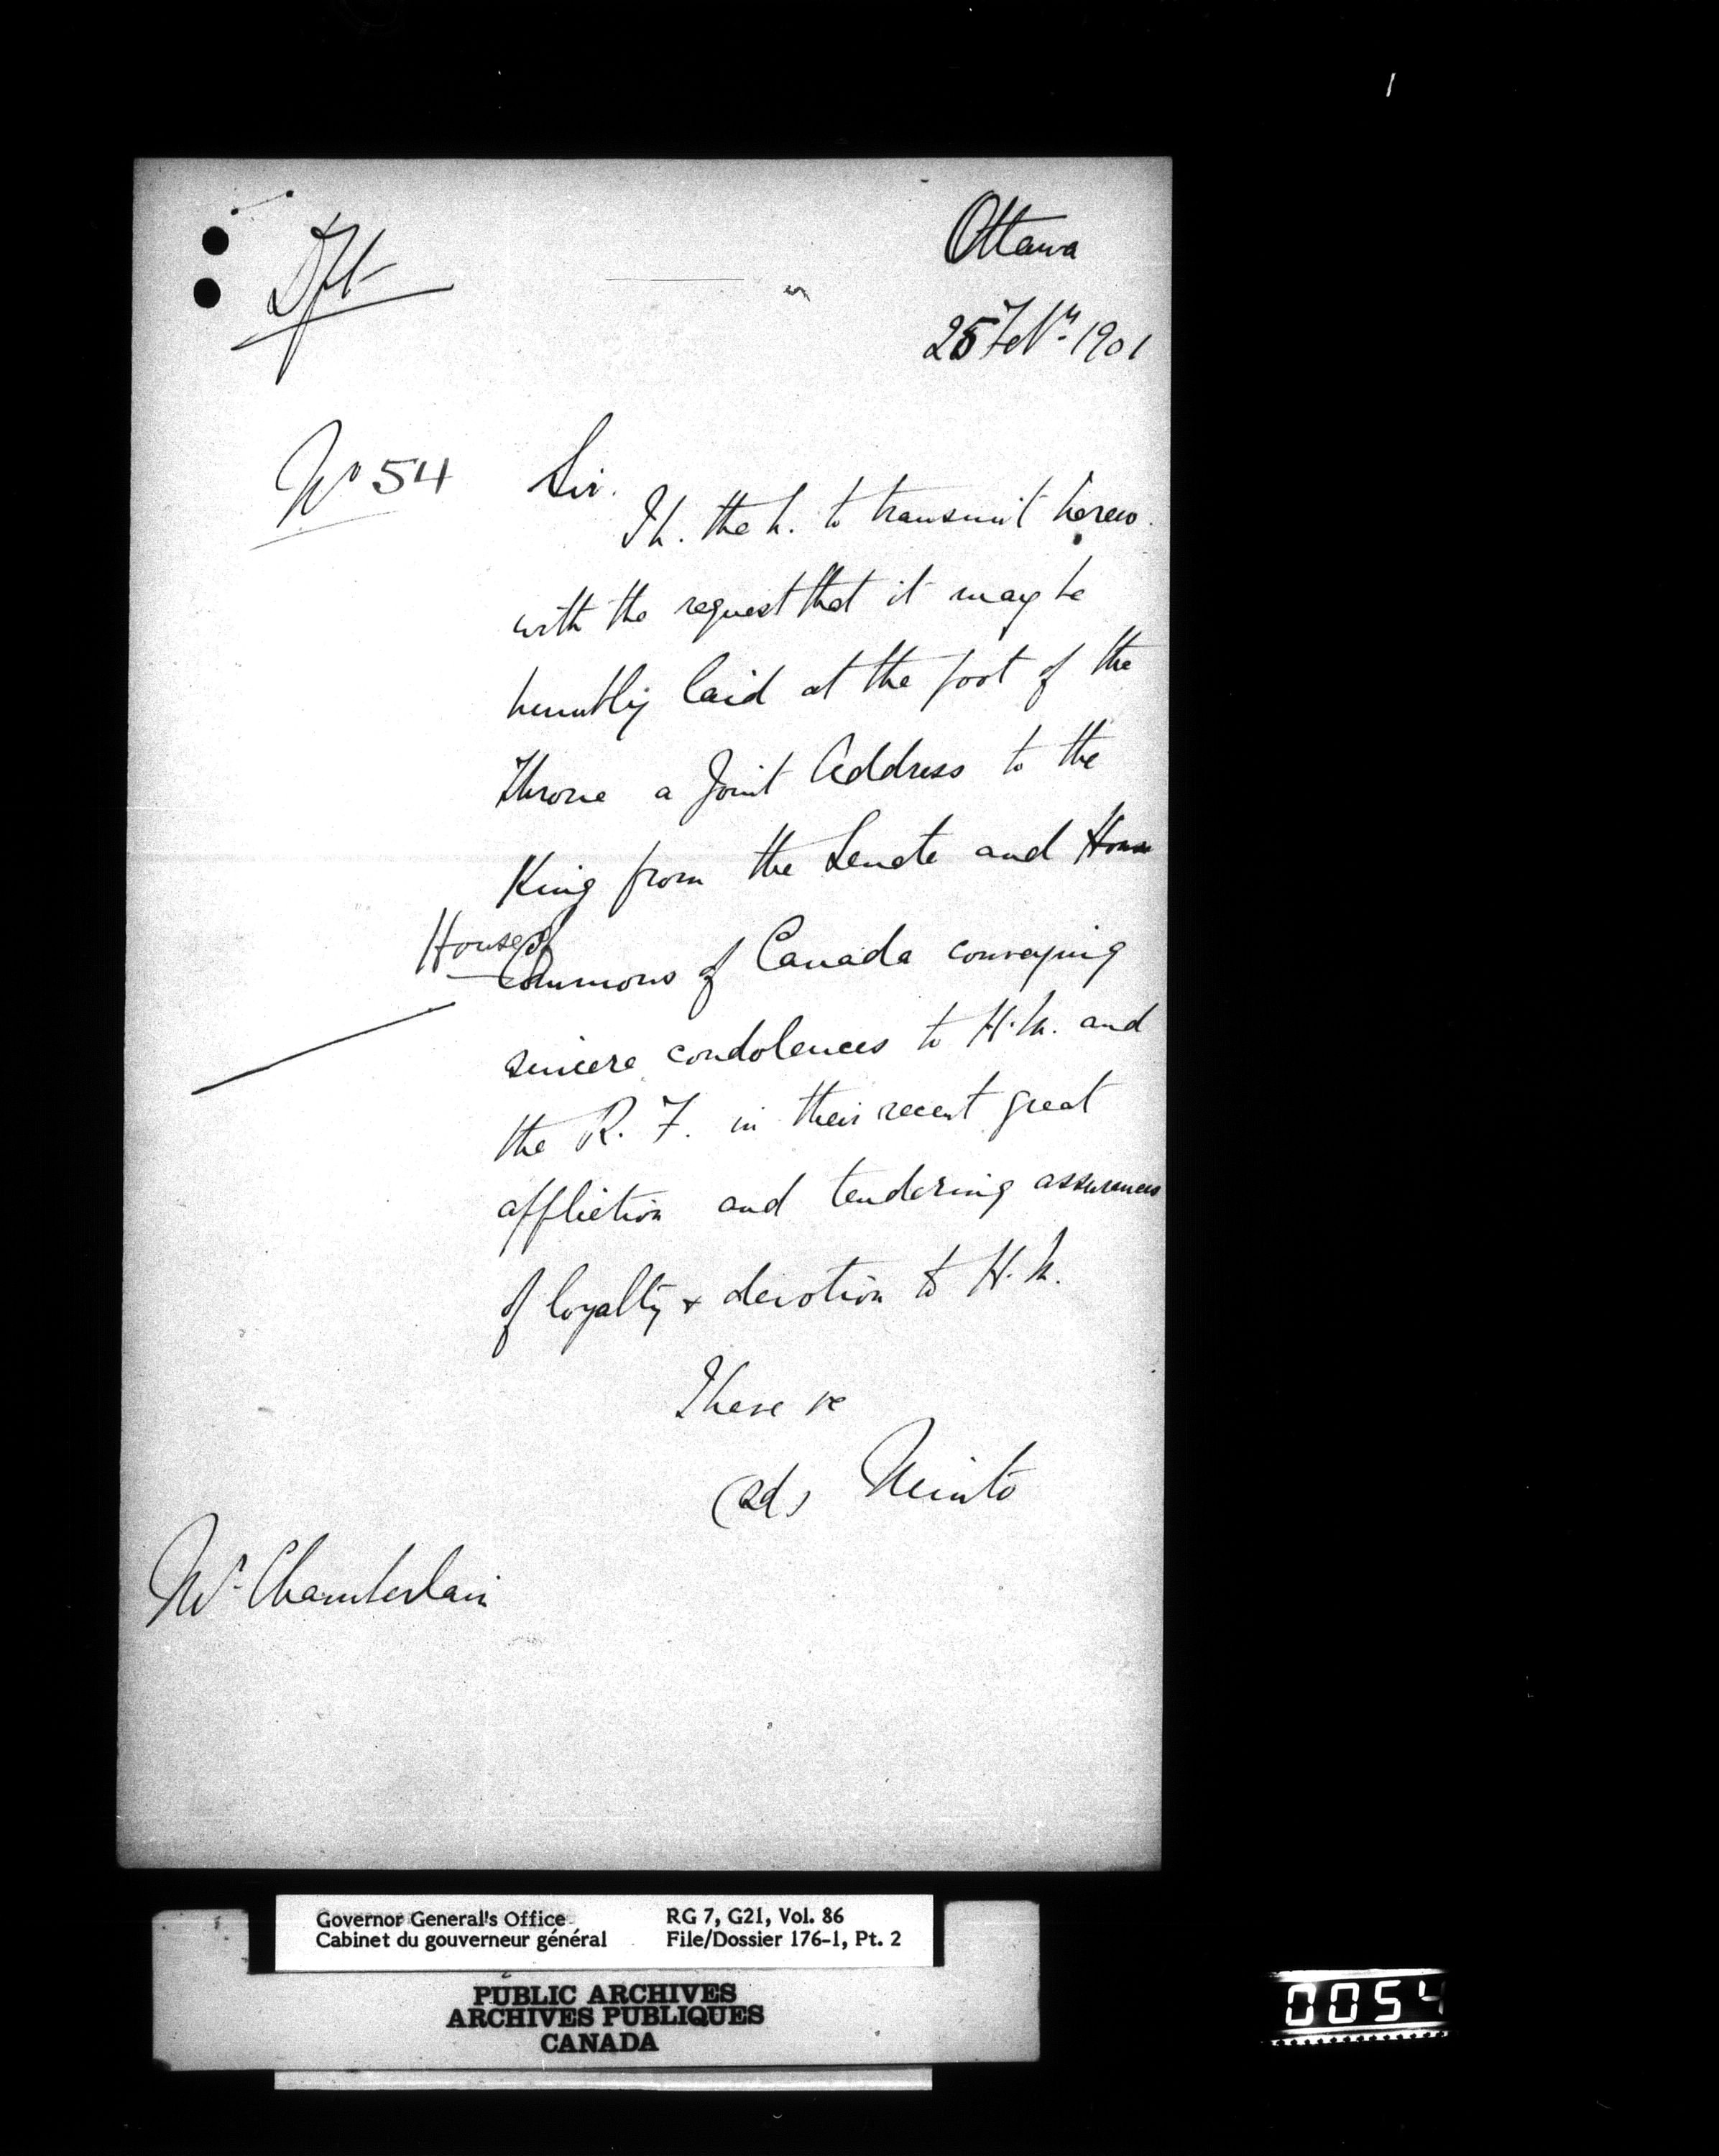 Dft
Ottawa
25 Feby. 1901
No 54
Sir.
I h. the h. to transmit herew.
with the request that it may be
humbly laid at the foot of the
Throne a Joint Address to the
King from the Senate and House
House of
Commons of Canada conveying
sincere condolences to H.M. and
the R. F. in their recent great
affliction and tendering assurances
of loyalty & devotion to H.M.
I have &c
(sd) Minto
Mr Chamberlain
Governor General's Office
Cabinet du gouverneur général
RG 7, G21, Vol. 86
File/Dossier 176-1, Pt. 2
PUBLIC ARCHIVES
ARCHIVES PUBLIQUES
CANADA
0054